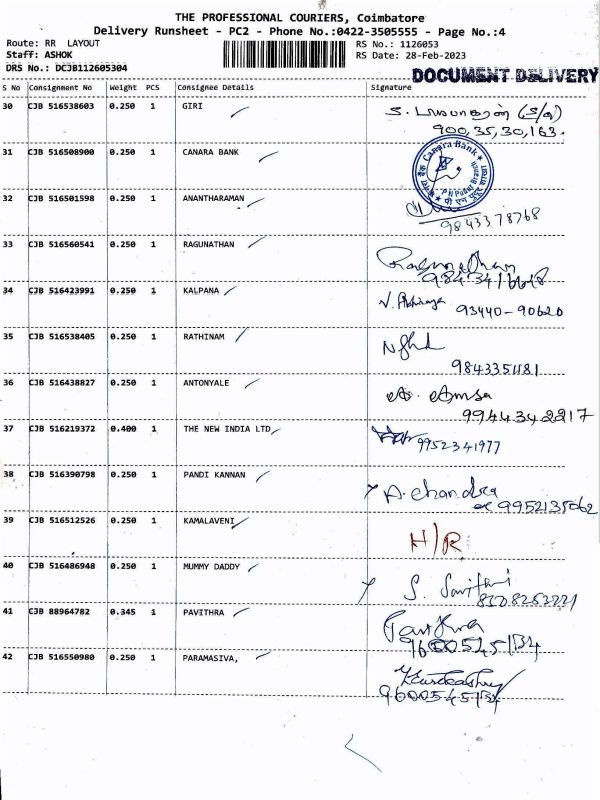 THE PROFESSIONAL COURIERS, Coimbatore
Delivery Runsheet - PC2 - Phone No.:0422-3505555 - Page No.:4
Route: RR LAYOUT RS No.: 1126053
Staff: ASHOK RS Date: 28-Feb-2023
DRS No.: DCJB112605304
DOCUMENT DELIVERY
S No Consignment No Weight PCS Consignee Details Signature
30 CJB 516538603 0.250 1 GIRI
900,35,30,163.
31 CJB 516508900 0.250 1 CANARA BANK Canara Bank
32 CJB 516501598 0.250 1 ANANTHARAMAN
9843378768
33 CJB 516560541 0.250 1 RAGUNATHAN
34 CJB 516423991 0.250 1 KALPANA 93440-90620
35 CJB 516538405 0.250 1 RATHINAM
36 CJB 516438827 0.250 1 ANTONYALE
9944342217
37 CJB 516219372 0.400 1 THE NEW INDIA LTD 9952341977
38 CJB 516390798 0.250 1 PANDI KANNAN A. chandra
9952135062
39 CJB 516512526 0.250 1 KAMALAVENI H/R
40 CJB 516486948 0.250 1 MUMMY DADDY
41 CJB 88964782 0.345 1 PAVITHRA
42 CJB 516550980 0.250 1 PARAMASIVA,